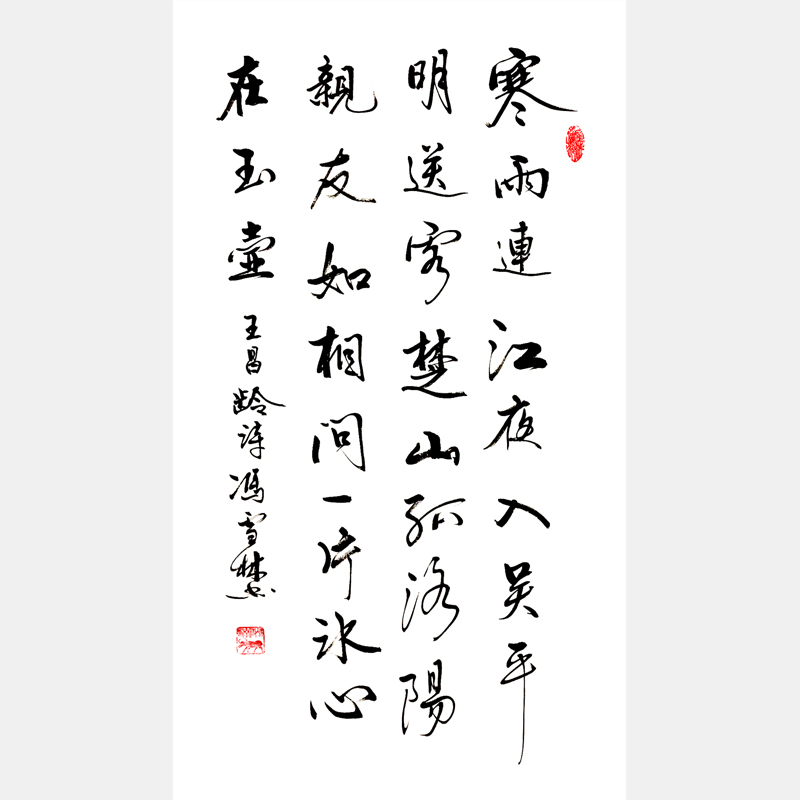 寒雨連江夜入吴平
明送客楚山孤洛陽
親友如相問一片冰心
在玉壺 王昌龄诗馮雪